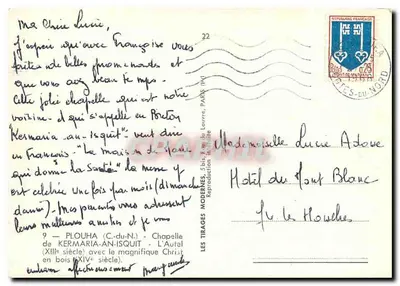 Ma Chère Lucie,
J'espère qu'avec Françoise vous
faites de belles promenades et
que vous avez beau temps.
Cette jolie chapelle qui est notre
voisine et qui s'appelle en Breton
Kermaria-an-isquit" veut dire
en Français: "Le maison de Marie
qui donne la Santé" la messe y
est célébrée une fois par mois (dimanche
dernier). Mes parents vous adressent
leurs meilleures amitiés et je vous
9 - PLOUHA (C.-du-N.) - Chapelle
de KERMARIA-AN-ISQUIT - L'Autel
(XIIIe siècle) avec le magnifique Christ
en bois (XIVe siècle).
embrasse affectueusement
22
LES TIRAGES MODERNES, 5 bis, rue du Louvre, PARIS (1er)
Reproduction interdite
REPUBLIQUE FRANÇAISE
CÔTES-DU-NORD
Mademoiselle Lucie Adoue
Hôtel du Mont Blanc
Les Houches